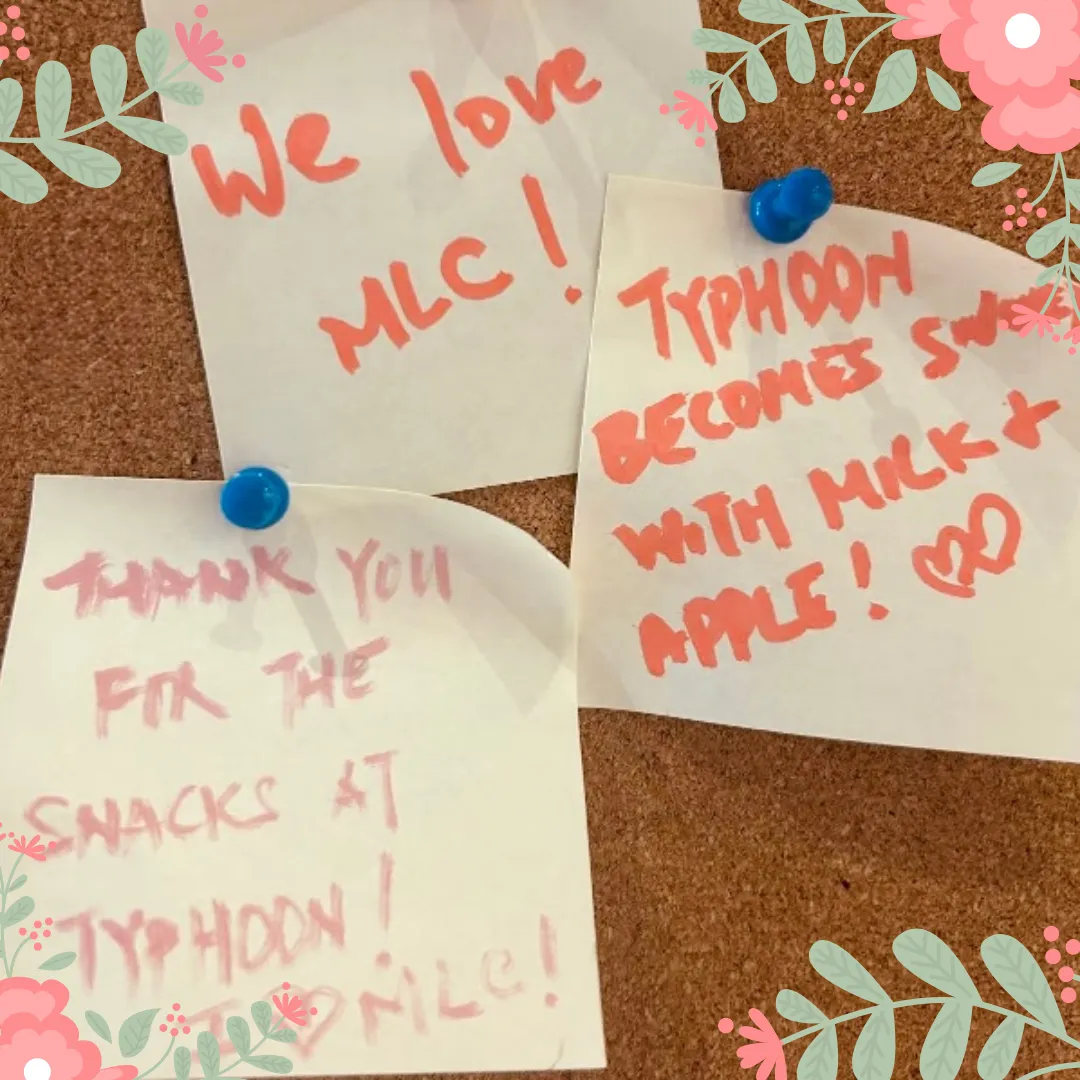 We love
MLC!
TYPHOON
BECOMES
WITH MILK &
APPLE!
THANK YOU
FOR THE
SNACKS AT
TYPHOON!
I ♡ MLC!